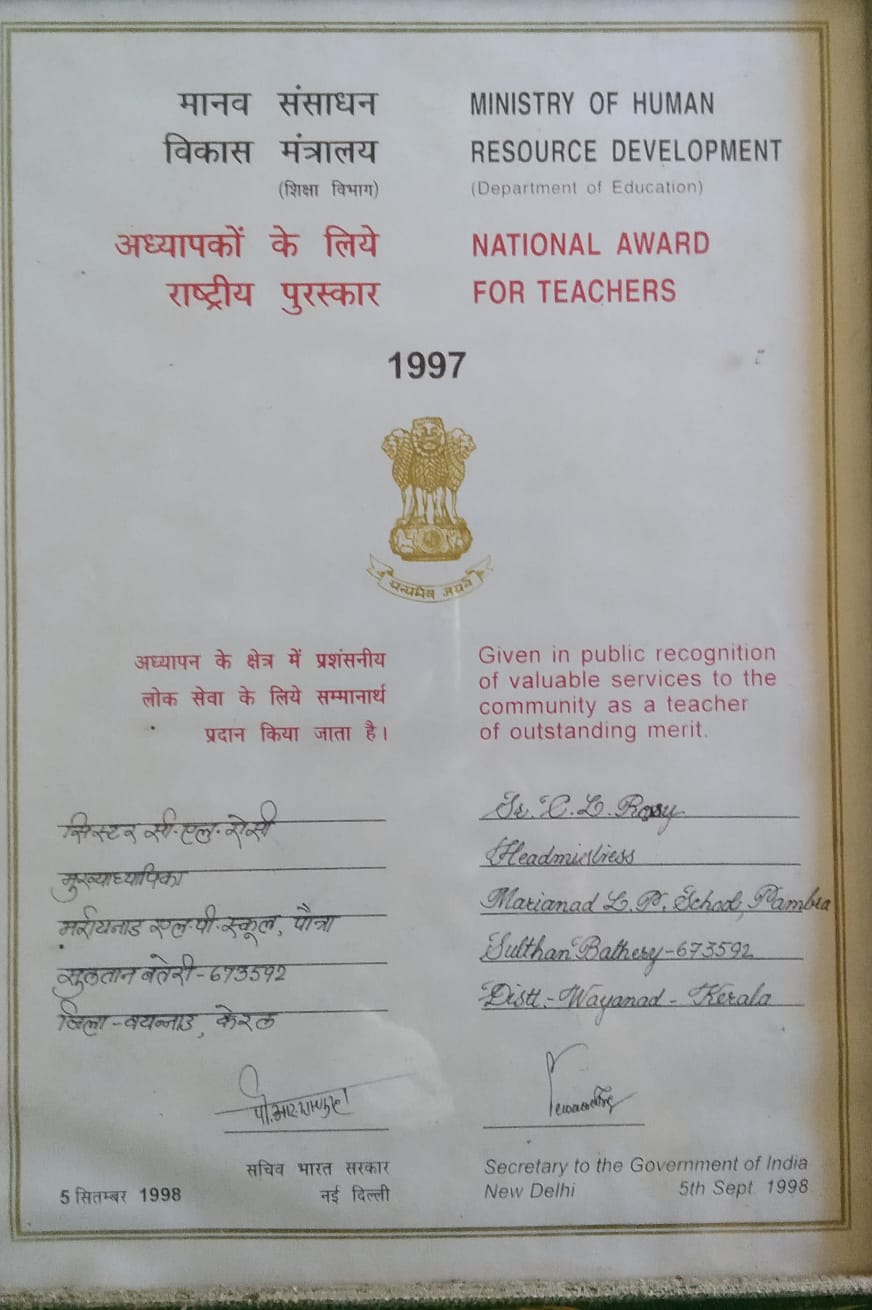 मानव संसाधन
विकास मंत्रालय
(शिक्षा विभाग)
MINISTRY OF HUMAN
RESOURCE DEVELOPMENT
(Department of Education)
अध्यापकों के लिये
राष्ट्रीय पुरस्कार
NATIONAL AWARD
FOR TEACHERS
1997
सत्यमेव जयते
अध्यापन के क्षेत्र में प्रशंसनीय
लोक सेवा के लिये सम्मानार्थ
प्रदान किया जाता है।
Given in public recognition
of valuable services to the
community as a teacher
of outstanding merit.
सिस्टर सी.एल. रोसी
मुख्याध्यापिका
मरीयनाड एल.पी. स्कूल,
सुलतान बतेरी-673592
जिला-वयन्नाड, केरल
Sr. C. L. Rosy
Headmistress
Marianad L. P. School, Pambra
Sulthan Bathery-673592
Distt.-Wayanad-Kerala
सचिव भारत सरकार
5 सितम्बर 1998 नई दिल्ली
Secretary to the Government of India
New Delhi 5th Sept 1998